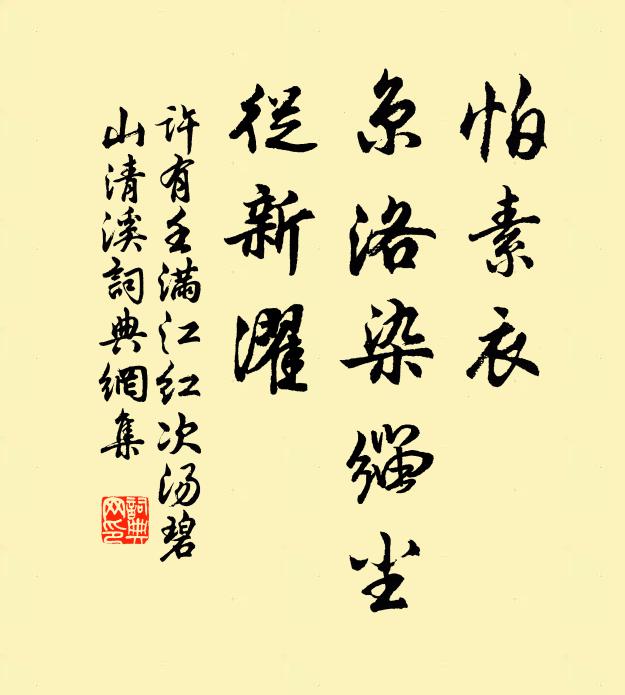 怕素衣
京洛染缁尘
從新濯
许有壬满江红次汤碧
山清溪詞典網集
詞典网印